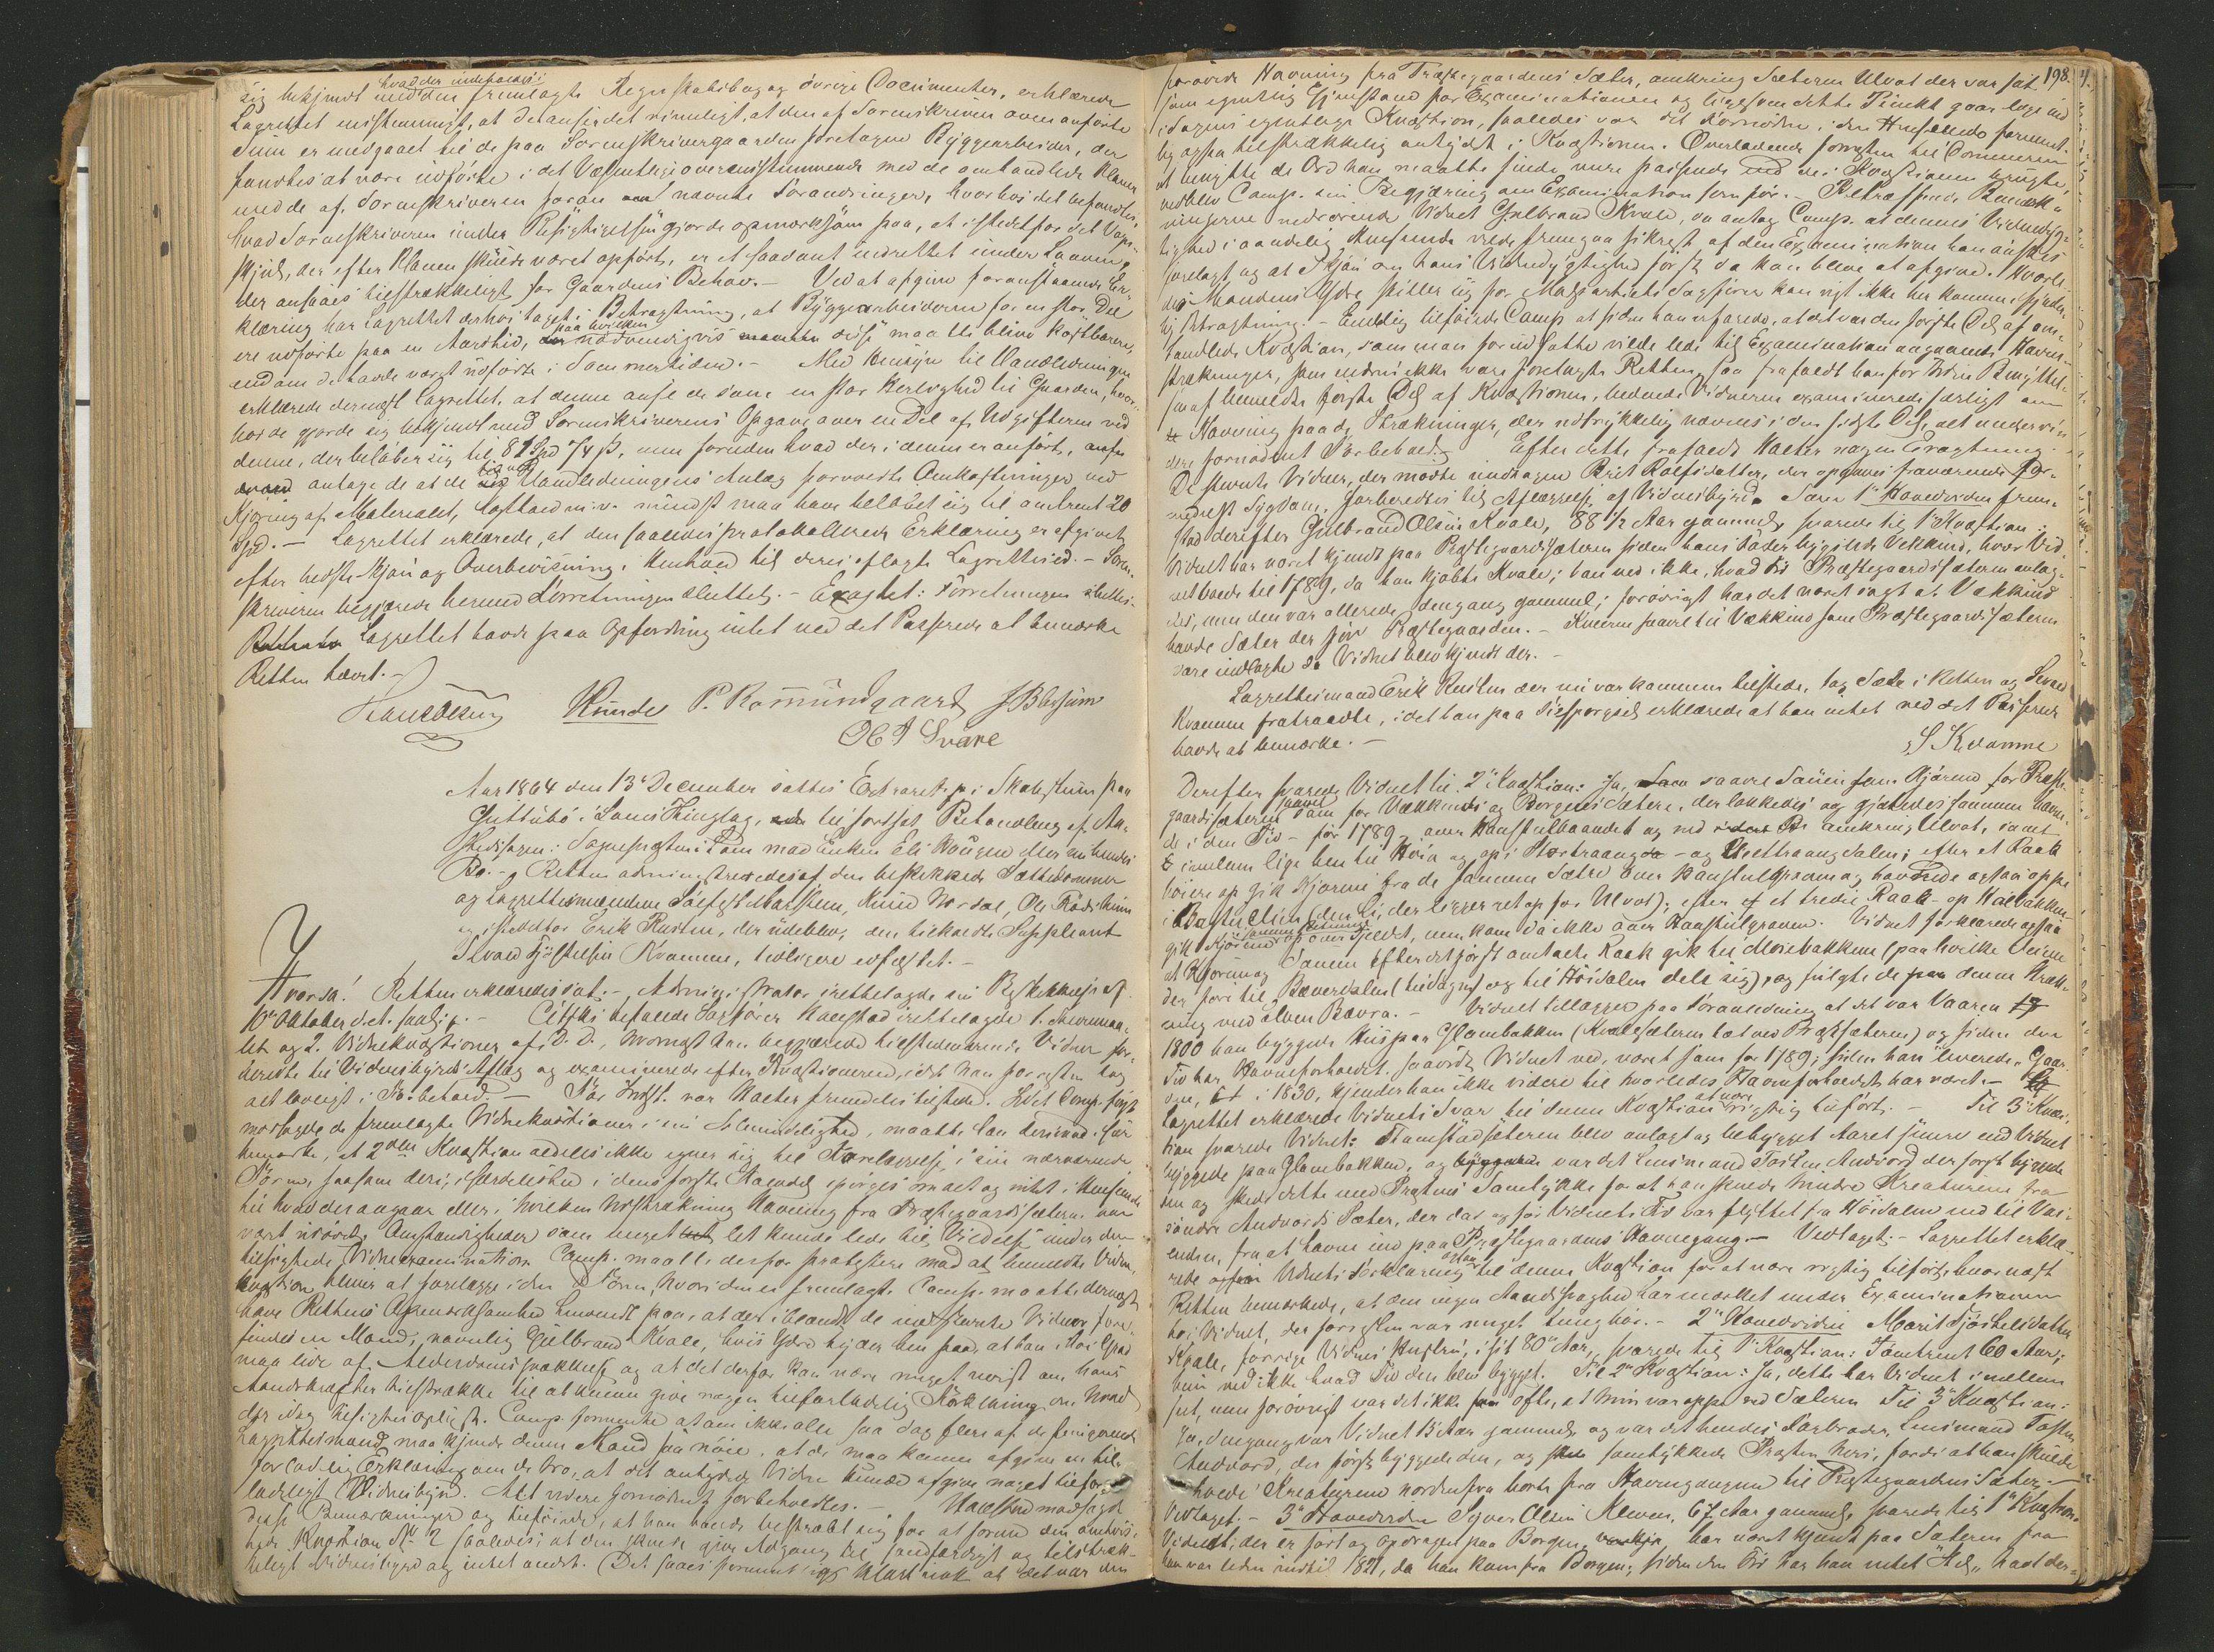 hvad der indeholdes i
sig bekjendt med den fremlagte Regnskabsbog og övrige Documenter, erklærede
Lagrettet enstemmigt, at det anser det rimeligt, at den af Sorenskriveren ovenanførte
Sum er medgaaet til de paa Sorenskrivergaarden foretagne Byggearbeider, der
fandtes at være udførte i det Væsentlige overensstemmende med de omhandlede Planer
med de af Sorenskriveren foran nævnte Forandringer, hvorhos det befandtes,
hvad Sorenskriveren under Besigtigelsen gjorde opmærksom paa, at istedetfor det Vogn-
skjul, der efter Planen skulde været opført, er et saadant indrettet under Laaven,
der ansaaes tilstrækkeligt for Gaardens Behov. - Ved at afgive foranstaaende Er-
klæring har Lagrettet derhos taget i Betragtning, at Byggearbeiderne for en stor Del
ere udførte paa en Aarstid, paa hvilken nødvendigvis disse maatte blive kostbarere,
end om de havde været udførte i Sommertiden. - Med Hensyn til Vandledningen
erklærede dernæst Lagrettet, at denne ansees som en stor Herlighed til Gaarden, hvor-
hos de gjorde sig bekjendt med Sorenskriverens Opgave over en Del af Udgifterne ved
denne, der beløber sig til 81 Spd 74 ß, men foruden hvad der i denne er anført,
antage de at de ved Vandledningens Anlæg forvoldte Omkostninger ved
Kjøring af Materialet, mindst maa have beløbet sig til omtrent 20
Spd. - Lagrettet erklærede, at den saaledes protokollerede Erklæring er afgivet
efter bedste Skjøn og Overbevisning i Henhold til deres aflagte Lagrettesed. - Soren-
skriveren begjærede hermed Forretningen sluttet. - Eragtet: Forretningen sluttes.
Lagrettet havde paa Opfordring intet ved det Passerede at bemærke
Retten hævet.
Kunde P. Romundgaard J Blessum
Ol J Svare
Aar 1864 den 13de December sattes Extraret p. i Skolestuen paa
Guttubø i Loms Thinglag, til fortsat Behandling af Au-
stedssagen: Sognepræsten i Lom mod Enken Eli Hougen eller nu hendes
Bo. - Retten administreredes af den beskikkede Sættedommer
og Lagrettesmændene Knud Norsal, Ole
og istedetfor Erik Rusten, der udeblev, den tilkaldte Suppleant
Sevald Kvamme, tidligere edfæstet. -
Hvorda! Retten erklæredes sat. - Administrator irettelagde sin Beskikkelse af
10de Oktober d. A. saal. - Citskis befalede Sagfører Kaastad irettelagde 1. Stevnemaa-
let og 2. Vidnekvæstioner af D. D., hvornæst han begjærede tilstedeværende Vidner for-
beredte til Vidnesbyrds Aflæg og examinerede efter Kvæstionerne, idet han forresten tog
alt lovligt i Forbehold. - For Indst. var Walter fremdeles tilstede. Idet Comp. først
modsagde de fremlagte Vidnekvæstioner i sin Almindelighed, maatte han derimod især
bemærke, at 2den Kvæstion aldeles ikke egner sig til Forelæggelse i sin nærværende
Form, saasom deri, isærdeleshed i dens første Halvdel spørges om alt og intet i Henseende
til hvad der angaar eller i hvilken Udstrækning Havning fra Præstegaardssæteren har
været udøvet, Omstændigheder som meget let kunde lede til Vildelse under den
tilsigtede Vidneexamination. Comp. maatte derfor protestere mod at bemeldte Vidne-
kvæstion bliver at forelægge i den Form, hvori den er fremlagt. Comp. maatte dernæst
have Rettens Opmærksomhed henvendt paa, at der iblandt de indstevnte Vidner fore-
findes en Mand, navnlig Gulbrand Kvale, hvis Ydre tyder hen paa, at han i høi Grad
maa lide af Alderdomssvækkelse og at det derfor kan være meget uvist om hans
Aandskræfter tilstrække til at kunne give nogen tilforladelig Forklaring om hvad
der idag tilsigtes oplyst. Comp. formente at om ikke alle saa dog flere af de fungerende
Lagrettesmænd maa kjende denne Mand saa nøie, at de maa kunne afgive en tilfor-
ladelig Erklæring om de tro, at det antydede Vidne kunde afgive noget tilfor-
ladeligt Vidnesbyrd. Alt videre fornødent forbeholdtes. - Kaastad modsagde
disse Bemærkninger og tilføiede, at han havde bestræbt sig for at forme den omtvis-
tede Kvæstion No 2 saaledes, at den skulde give Adgang til sandfærdigt og tilstræk-
keligt Vidnesbyrd og intet andet. (Det synes forment og klart nok at det var den
198.
forøvede Havning fra Præstegaardens Sæter, omkring Sæteren Ulvat der var sat
som egentlig Gjenstand for Examinationen og ligesom dette Punkt gaar lige ind
i Sagens egentlige Kvæstion, saaledes var det Fornødne i den Henseende forment-
lig ogsaa tilstrækkelig antydet i Kvæstionen. Overladende forresten til Dommeren
at benytte de Ord han maatte finde mere passende end de i Kvæstionen brugte,
vedblev Comp. sin Begjæring om Examination som før. - Betræffende Bemærk-
ningerne vedrørende Vidnet Gulbrand Kvale, da antog Comp. at dennes Vidnedyg-
tighed i aandelig Henseende vilde fremgaa sikrest af den Examination han ønskes
forelagt og at Skjøn om hans Vidnedygtighed først da kan blive at afgive. Hvorle-
des Mandens Ydre stiller sig for Modpartiets Sagfører kan vist ikke her komme i synder-
lig Betragtning. - Endelig tilføiede Comp. at siden han erfarede, at det var den første Del af om-
handlede Kvæstion, som man formente vilde lede til Examination angaaende Havne-
strækninger, som endnu ikke vare forelagte Retten, saa frafaldt han for Tiden Benyttel-
sen af bemeldte første Del af Kvæstionen, bedende Vidnerne examinerede særligt om
Havning paa de Strækninger, der udtrykkelig nævnes i den sidste Del, alt under vi-
dere fornødent Forbehold. Efter dette frafaldt Walter nogen Eragtning. -
De stevnte Vidner, der mødte undtagen Brit Rolfsdatter, der opgaves fraværende for-
medelst Sygdom, forberedtes til Aflæggelse af Vidnesbyrd. Som 1ste Hovedvidne frem-
stod derefter Gulbrand Olsen Kvale, 88 1/2 Aar gammel, svarede til 1ste Kvæstion:
Vidnet har været kjendt paa Præstegaardssæteren siden hans Fader bygslede Vekkind, hvor Vid-
net boede til 1789, da han kjøbte Kvale; han ved ikke, hvad Tid Præstegaardssæteren anlag-
des, men den var allerede dengang gammel; forøvrigt har det været sagt at Vækkind
havde Sæter der før Præstegaarden. - Kverne saavel til Vækkind som Præstegaardssæteren
vare indlagte da Vidnet blev kjendt der. -
Lagrettesmand Erik Rusten der nu var kommen tilstede, tog Sæde i Retten og Sevald
Kvamme fratraadte, idet han paa Tilspørgsel erklærede at han intet ved det Passerede
havde at bemærke. -
S Kvamme
Derefter svarede Vidnet til 2den Kvæstion: Ja, saavel Sauen som Kjørene for Præste-
gaardssæteren saavel som for Vækkinds og Borgens Sætere, der lokkedes og gjætedes sammen havne-
de i den Tid - før 1789 - over Kaastulbaandet og ned omkring Ulvat, samt
imellem lige hen til Høia og op i Stortraang - og Veslltraangdalen; efter et Raak
høiere op gik Kjørene fra de samme Sætre over Kaastulgroven og havnede ogsaa oppe
i Bastulien (den Li, der ligger ret op for Ulvat); efter et tredie Raak op Kalbakken
gik Kjørene i samme Retning op over Fjeldet, men kom da ikke over Kaastulgroven. Vidnet forklarede ogsaa
at Kjørene og Sauen efter det først omtalte Raak gik til Moiebakken (paa hvilke Veiene
der føre til Bæverdalen (tildags) og til Høidalen dele sig), og fulgte de denne Stræk-
ning ved Elven Bævra. - Vidnet tillagde paa Foranledning at det var Vaaren
1800 han byggede Hus paa Glambakken (Kvalesæteren tæt ved Præstsæteren) og siden den
Tid har Havneforholdet, saavidt Vidnet ved, været som før 1789; siden han leverede Gaar-
den, i 1830, kjender han ikke videre til hvorledes Havneforholdet har været. -
Lagrettet erklærede Vidnets Svar til denne Kvæstion at være rigtig tilført. - Til 3die Kvæs-
tion svarede Vidnet: Flaamstadsæteren blev anlagt og bebygget Aaret senere end Vidnet
byggede paa Glambakken, og var det Lensmand Torsten Andvord der først byggede
den og skede dette med Præstens Samtykke for at han skulde hindre Kreaturene fra
søndre Andvords Sæter, der da og før Vidnets Tid var flyttet fra Høidalen ned til Vas-
enden, fra at havne ind paa Præstegaardens Havnegang. - Vedtaget. - Lagrettet erklæ-
rede ogsaa Vidnets Forklaring til denne Kvæstion for at være rigtig tilført, hvornæst
Retten bemærkede, at den ingen Aandssløvhed har mærket under Examinationen
hos Vidnet, der forresten var meget tunghør. - 2det Hovedvidne Marit Fjøstelsdatter
Kvale, forrige Vidnes Hustru, i sit 80de Aar, svarede til 1ste Kvæstion: I omtrent 60 Aar;
hun ved ikke hvad Tid den blev bygget. Til 2den Kvæstion: Ja, dette har Vidnet imellem
set, men forøvrigt var det ikke ofte, at hun var oppe ved Sæteren. Til 3die Kvæstion:
Ja, dengang var Vidnet 13 Aar gammel og var det hendes Farbroder, Lensmand Torsten
Andvord, der først byggede den, og samtykkede Præsten heri, fordi at han skulde
holde Kreaturene nordenfra borte fra Havnegangen til Præstegaardens Sæter. -
Vedtaget. - 3die Hovedvidne Syver Olsen Kleven, 67 Aar gammel, svarede til 1ste Kvæstion:
Vidnet, der er født og opdraget paa Borgen, har været kjendt paa Sæteren fra
han var liden indtil 1821, da han kom fra Borgen; siden den Tid har han intet "Held" havt der-